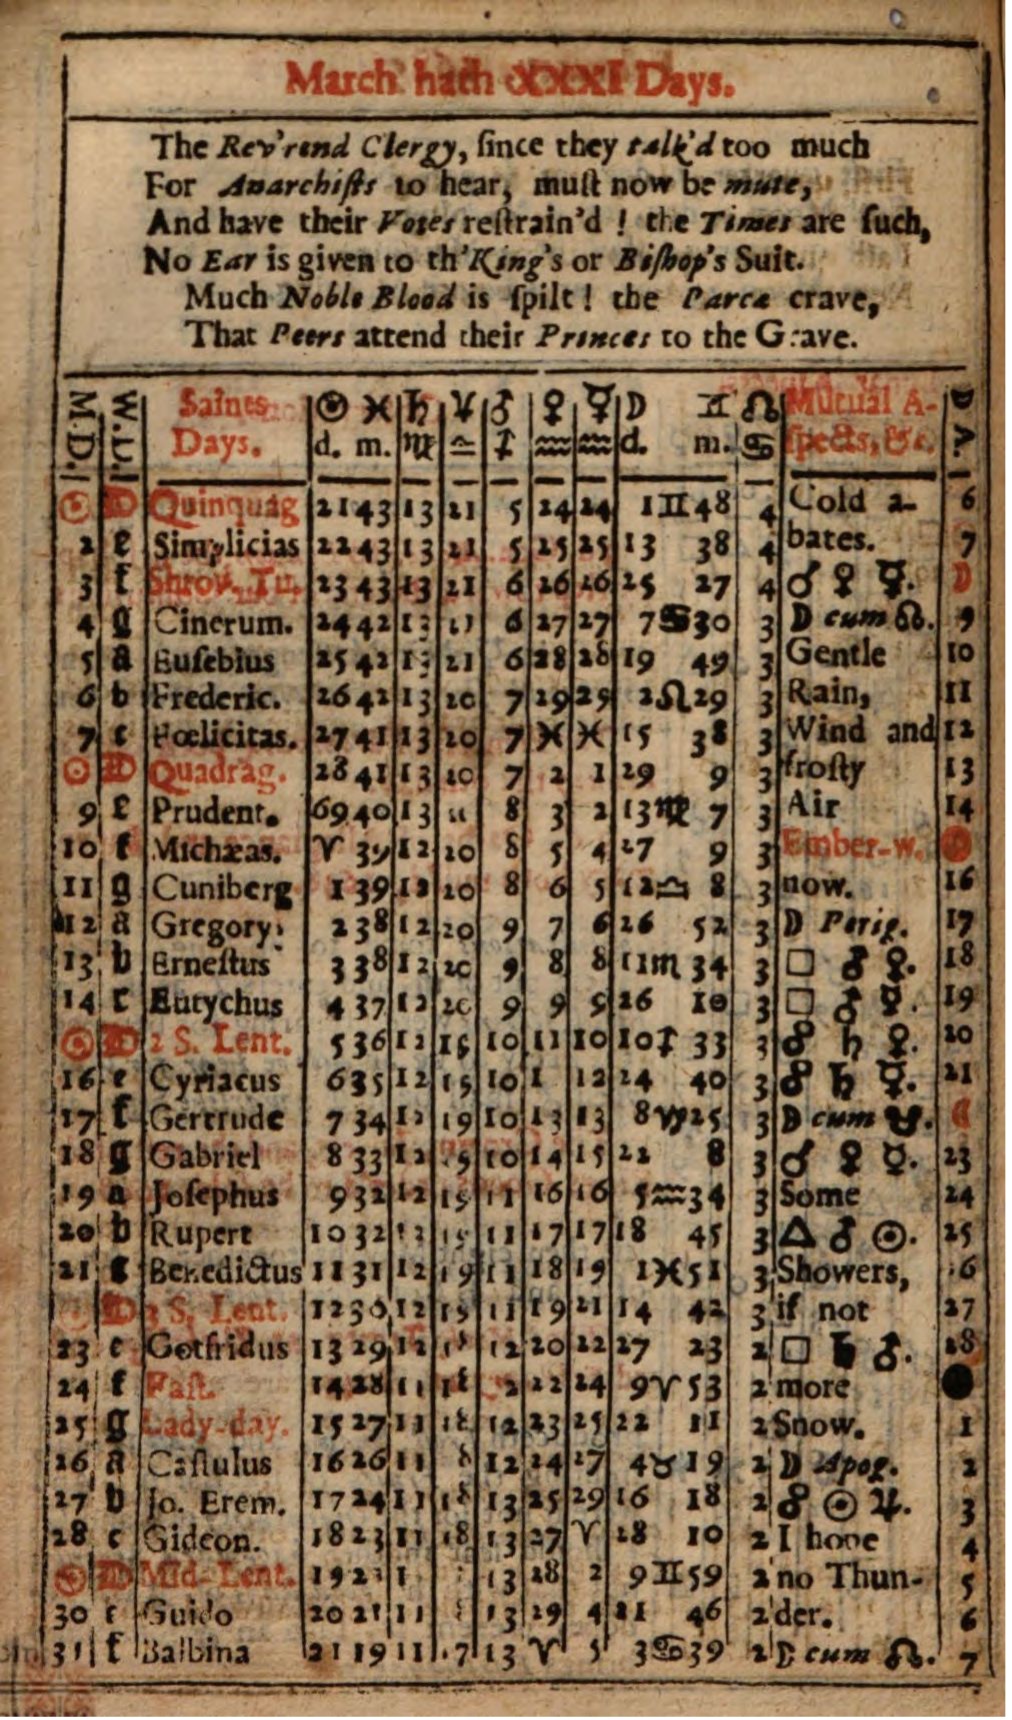 March hath XXXI Days.
The Rev'rend Clergy, ſince they talk'd too much
For Anarchiſts to hear, muſt now be mute,
And have their Votes reſtrain'd ! the Times are ſuch,
No Ear is given to th'King's or Biſhop's Suit.
Much Noble Blood is ſpilt ! the Parcæ crave,
That Peers attend their Princes to the Grave.
M.D. W.D. Saints ☉ ♓ ♄ ♃ ♂ ♀ ☿ ☽ ♊ ☊ Mutual A- D A.
Days. d. m. ♍ ♎ ♐ ♒ ♒ d. m. ♋ ſpects, &c.
☉ D Quinquag 21 43 13 21 5 24 24 1 ♊ 48 4 Cold a- 6
2 e Simplicias 22 43 13 21 5 25 25 13 38 4 bates. 7
3 f Shrov. Tu. 23 43 13 21 6 26 26 25 27 4 ☌ ♀ ☿. ☽
4 g Cinerum. 24 42 13 6 27 27 7 ♋ 30 3 ☽ cum ☊. 9
5 a Euſebius 25 42 13 21 6 28 28 19 49 3 Gentle 10
6 b Frederic. 26 42 13 20 7 29 29 2 ♌ 29 3 Rain, 11
7 c Fœlicitas. 27 41 13 20 7 ♓ ♓ 15 38 3 Wind and 12
☉ D Quadrag. 28 41 13 20 7 2 1 29 9 3 froſty 13
9 e Prudent. 69 40 13 8 3 2 13 ♍ 7 3 Air 14
10 f Michæas. ♈ 39 12 20 8 5 4 27 9 3 Ember-w.
11 g Cuniberg 1 39 12 20 8 6 5 12 ♎ 8 3 now. 16
12 a Gregory 2 38 12 20 9 7 6 26 52 3 ☽ Perig. 17
13 b Erneſtus 3 38 12 20 9 8 8 11 ♏ 34 3 □ ♂ ♀. 18
14 c Eutychus 4 37 12 20 9 9 9 26 10 3 □ ♂ ☿. 19
☉ D 2 S. Lent. 5 36 12 19 10 11 10 10 ♐ 33 3 ☍ ♄ ♀. 20
16 e Cyriacus 6 35 12 19 10 1 12 24 40 3 ☍ ♄ ☿. 21
17 f Gertrude 7 34 12 19 10 13 13 8 ♑ 25 3 ☽ cum ☋. ☾
18 g Gabriel 8 33 12 19 10 14 15 22 8 3 ☌ ♀ ☿. 23
19 a Joſephus 9 32 12 19 11 16 16 5 ♒ 34 3 Some 24
20 b Rupert 10 32 12 19 11 17 17 18 45 3 △ ♂ ☉. 25
21 c Benedictus 11 31 12 19 11 18 19 1 ♓ 51 3 Showers, 26
D 3 S. Lent. 12 30 12 19 11 19 21 14 42 3 if not 27
23 e Gotfridus 13 29 12 18 12 20 22 27 23 2 □ ♄ ♂. 28
24 f Faſt. 14 28 11 18 2 22 24 9 ♈ 53 2 more ●
25 g Lady-day. 15 27 11 18 12 23 25 22 11 2 Snow. 1
26 a Caſtulus 16 26 11 8 12 24 27 4 ♉ 19 2 ☽ Apog. 2
27 b Jo. Erem. 17 24 11 18 13 25 29 16 18 2 ☍ ☉ ♃. 3
28 c Gideon. 18 23 11 18 13 27 ♈ 28 10 2 I hope 4
☉ D Mid-Lent. 19 2 1 13 28 2 9 ♊ 59 2 no Thun- 5
30 e Guido 20 21 11 13 29 4 21 46 2 der. 6
31 f Balbina 21 19 11 17 13 ♈ 5 3 ♋ 39 2 ☽ cum ☊. 7